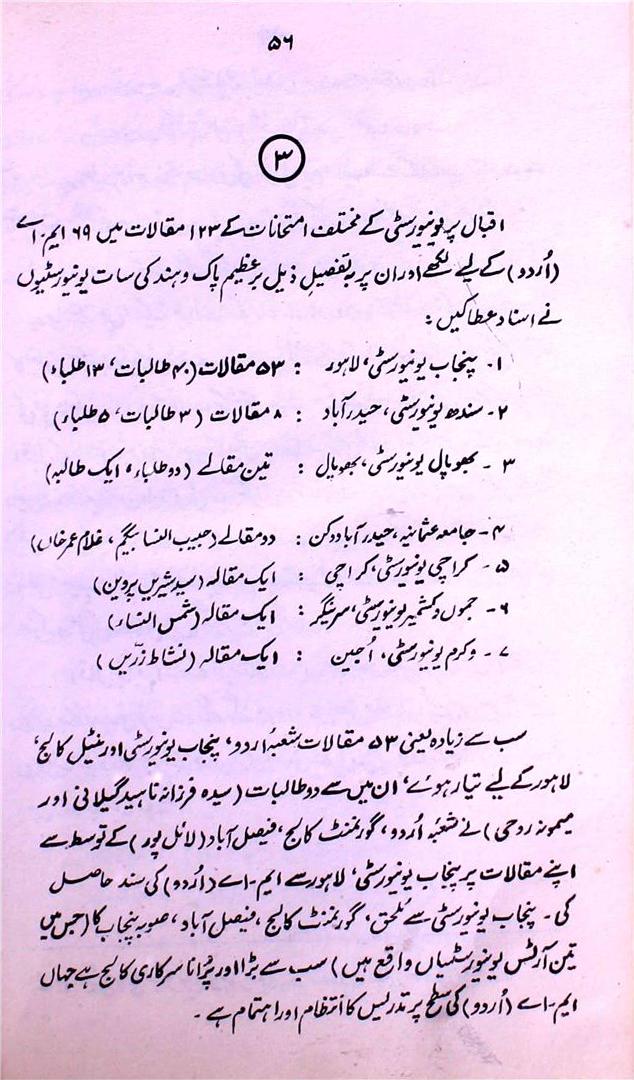 ۵۶
۳
اقبال پر یونیورسٹی کے مختلف امتحانات کے ۱۲۳ مقالات میں ۶۹ ایم۔اے
(اُردو) کے لیے لکھے اور ان پر بہ تفصیلِ ذیل برعظیم پاک و ہند کی سات یونیورسٹیوں
نے اسناد عطا کیں:
۱۔ پنجاب یونیورسٹی، لاہور : ۵۳ مقالات (۴۰ طالبات، ۱۳ طلباء)
۲۔ سندھ یونیورسٹی، حیدرآباد : ۸ مقالات (۳ طالبات، ۵ طلباء)
۳۔ بھوپال یونیورسٹی، بھوپال : تین مقالے (دو طلباء، ایک طالبہ)
۴۔ جامعہ عثمانیہ، حیدرآباد دکن : دو مقالے (حبیب النسا بیگم، غلام عمر خاں)
۵۔ کراچی یونیورسٹی، کراچی : ایک مقالہ (سید شیریں پروین)
۶۔ جموں و کشمیر یونیورسٹی، سرینگر : ایک مقالہ (شمس النساء)
۷۔ وکرم یونیورسٹی، اُجین : ایک مقالہ (نشاط زرّیں)
سب سے زیادہ یعنی ۵۳ مقالات شعبۂ اُردو، پنجاب یونیورسٹی اورینٹیل کالج،
لاہور کے لیے تیار ہوئے، ان میں سے دو طالبات (سیدہ فرزانہ ناہید گیلانی اور
میمونہ روحی) نے شعبۂ اُردو، گورنمنٹ کالج، فیصل آباد (لائل پور) کے توسط سے
اپنے مقالات پر پنجاب یونیورسٹی، لاہور سے ایم۔اے (اُردو) کی سند حاصل
کی۔ پنجاب یونیورسٹی سے مُلحق، گورنمنٹ کالج، فیصل آباد، صوبہ پنجاب کا (جس میں
تین آرٹس یونیورسٹیاں واقع ہیں) سب سے بڑا اور پُرانا سرکاری کالج ہے جہاں
ایم۔اے (اُردو) کی سطح پر تدریس کا انتظام اور اہتمام ہے۔